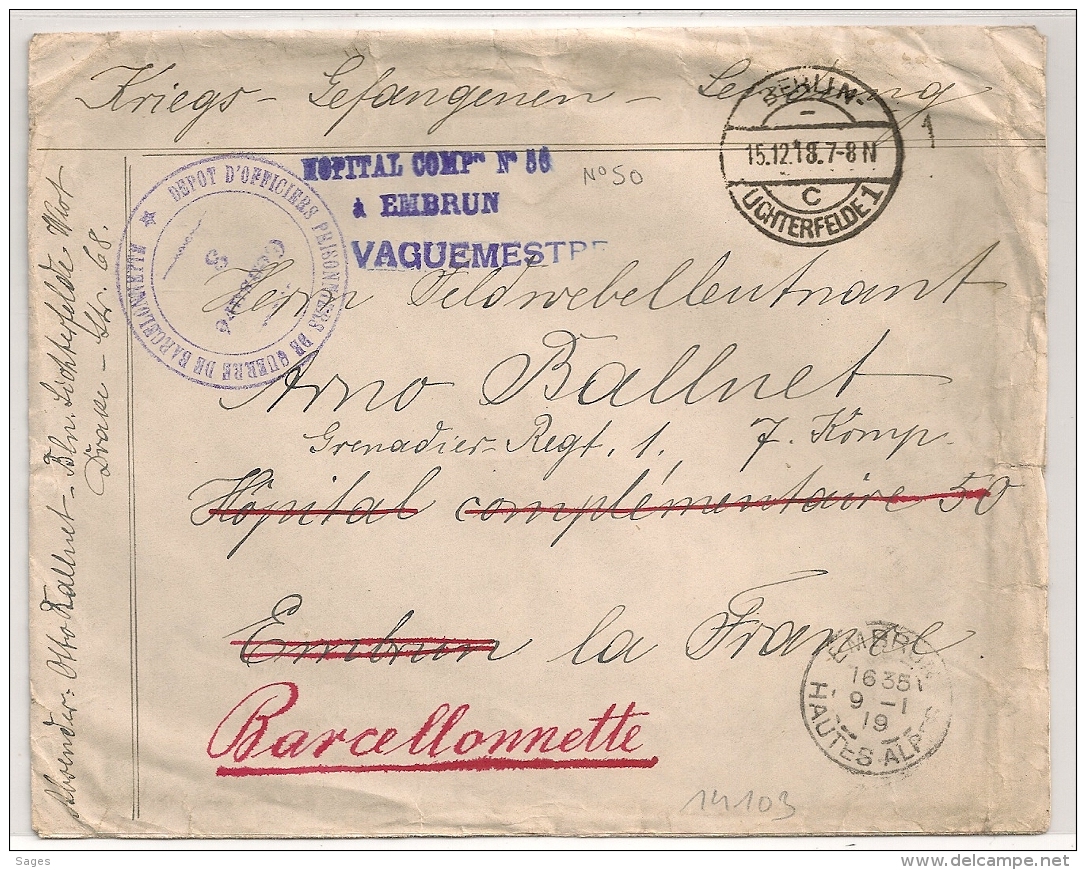 Kriegs - Gefangenen - Sendung
BERLIN-
15.12.18.7-8N
C
LICHTERFELDE 1
HOPITAL COMPre N° 50
à EMBRUN
VAGUEMESTRE
N° 50
DEPOT D'OFFICIERS PRISONNIERS DE GUERRE DE BARCELONNETTE
Herrn Feldwebelleutnant
Arno Ballnet
Grenadier-Regt. 1. 7. Komp.
Hôpital complémentaire 50
Embrun la France
Barcellonnette
EMBRUN
1635
9 -1
19
HAUTES ALPES
14103
Absender: Otto Ballnet - Bln. Lichterfelde-West
Drake - Str. 68.
Sages
delcampe.net